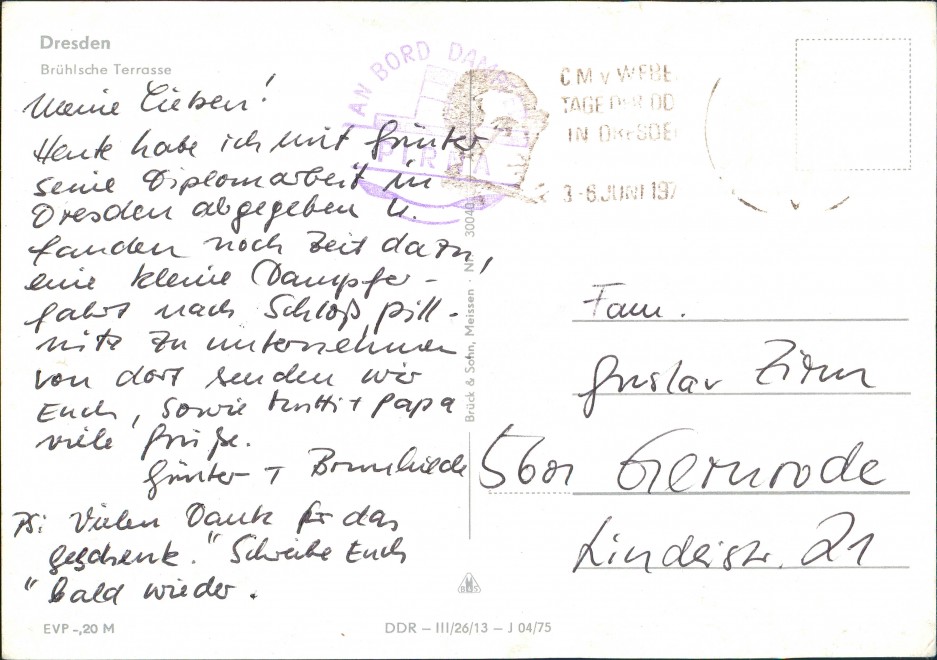 Dresden
Brühlsche Terrasse
Meine Lieben!
Heute habe ich mit Günter
seine Diplomarbeit in
Dresden abgegeben u.
fanden noch Zeit dazu,
eine kleine Dampfer-
fahrt nach Schloß Pill-
nitz zu unternehmen
von dort senden wir
Euch, sowie Mutti + Papa
viele Grüße.
Günter + Brunhilde
PS: Vielen Dank für das
Geschenk." Schreibe Euch
" bald wieder.
EVP -,20 M
AN BORD DAMP
PIRNA
C M v WEBE
TAGE DER OD
IN DRESDE
3-6.JUNI 197
Brück & Sohn, Meissen · Nr. 30040
Fam.
Gustav Zirm
5601 Gernrode
Lindenstr. 21
DDR – III/26/13 – J 04/75